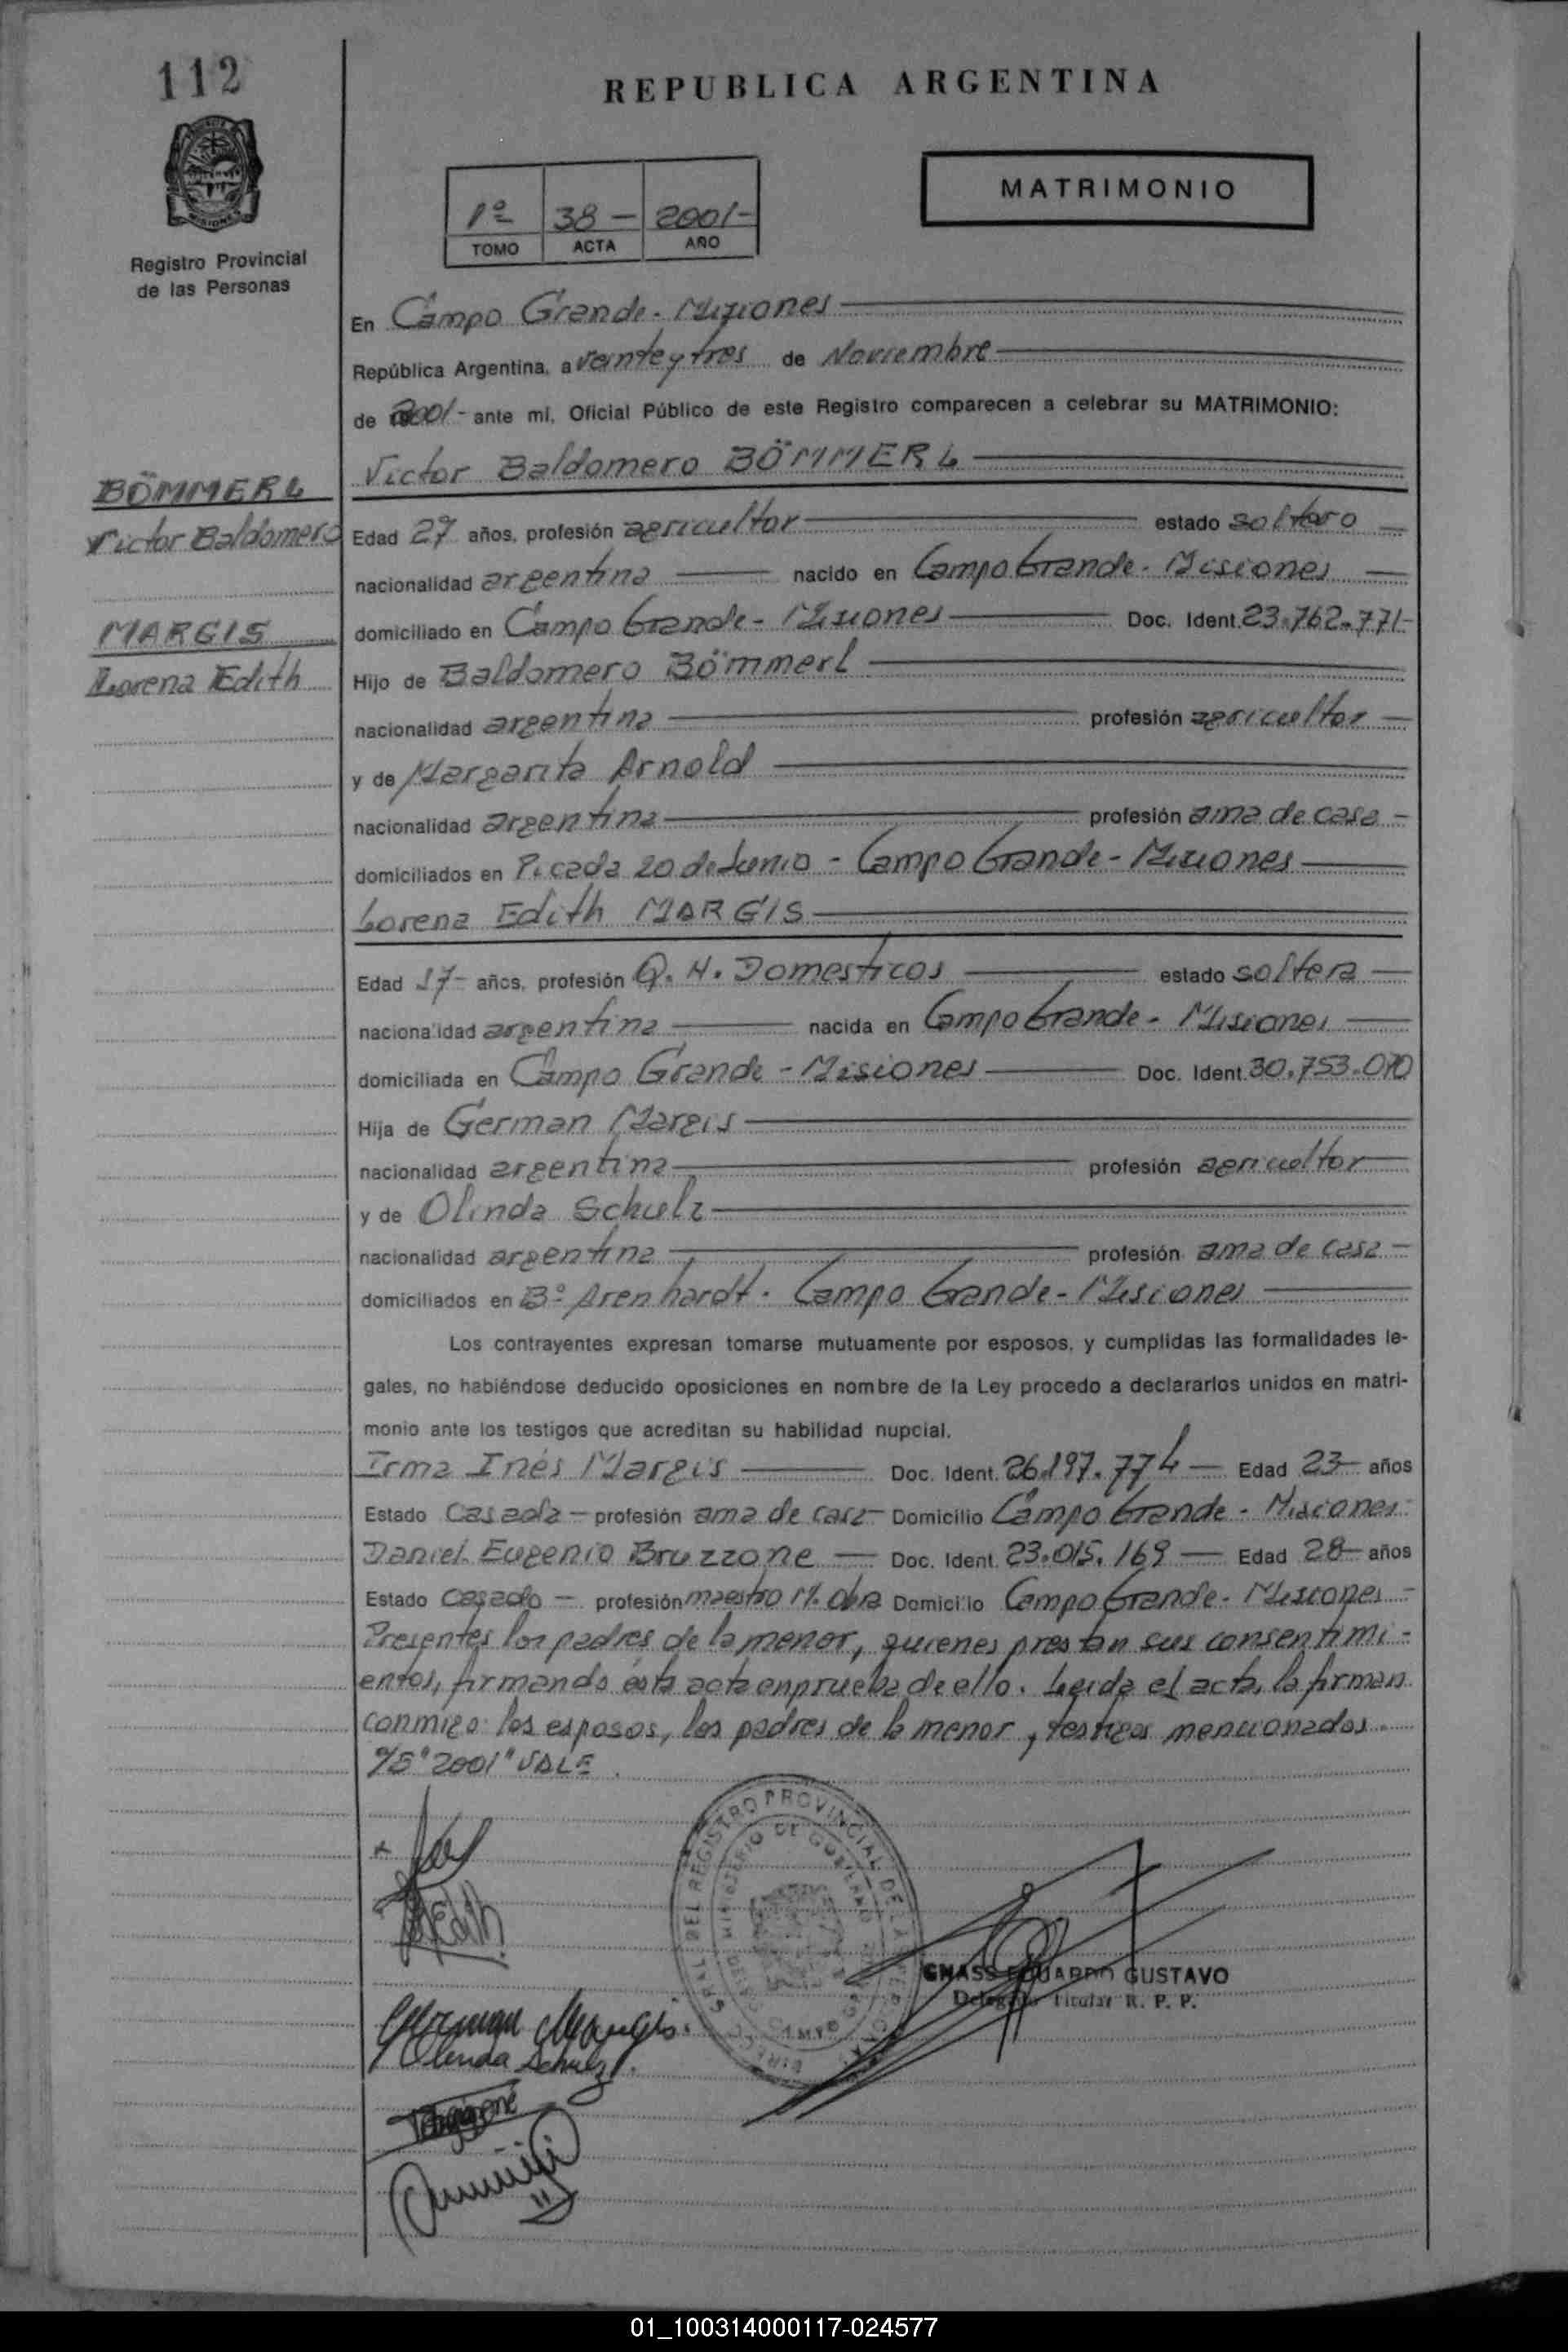 112
REPUBLICA ARGENTINA
MATRIMONIO
1º 38 - 2001 -
TOMO ACTA AÑO
MISIONES
Registro Provincial
de las Personas
En Campo Grande - Misiones
República Argentina, a veinte y tres de Noviembre
de 2001 - ante mí, Oficial Público de este Registro comparecen a celebrar su MATRIMONIO:
Victor Baldomero BÖMMERL
BÖMMERL
Victor Baldomero
MARGIS
Lorena Edith
Edad 27 años, profesión agricultor estado soltero
nacionalidad argentina nacido en Campo Grande - Misiones
domiciliado en Campo Grande - Misiones Doc. Ident. 23.762.771-
Hijo de Baldomero Bömmerl
nacionalidad argentina profesión agricultor
y de Margarita Arnold
nacionalidad argentina profesión ama de casa -
domiciliados en Picada 20 de Junio - Campo Grande - Misiones
Lorena Edith MARGIS
Edad 17 años, profesión Q. H. Domesticos estado soltera
nacionalidad argentina nacida en Campo Grande - Misiones
domiciliada en Campo Grande - Misiones Doc. Ident. 30.753.070
Hija de German Margis
nacionalidad argentina profesión agricultor
y de Olinda Schulz
nacionalidad argentina profesión ama de casa -
domiciliados en Bº Arenhardt. Campo Grande - Misiones
Los contrayentes expresan tomarse mutuamente por esposos, y cumplidas las formalidades le-
gales, no habiéndose deducido oposiciones en nombre de la Ley procedo a declararlos unidos en matri-
monio ante los testigos que acreditan su habilidad nupcial.
Irma Inés Margis Doc. Ident. 26.197.774 - Edad 23 años
Estado casada - profesión ama de casa - Domicilio Campo Grande - Misiones
Daniel Eugenio Bruzzone - Doc. Ident. 23.015.169 - Edad 28 años
Estado casado - profesión maestro M. Obra Domicilio Campo Grande - Misiones -
Presentes los padres de la menor, quienes prestan sus consentimi-
entos, firmando ésta acta en prueba de ello. Leída el acta, la firman
conmigo: los esposos, los padres de la menor, y testigos mencionados.
S/E "2001" VALE.
Edith
German Margis.
Olinda Schulz.
GRAL. DEL REGISTRO PROVINCIAL DE LAS
MINISTERIO DE GOBIERNO
GNASS EDUARDO GUSTAVO
Delegado Titular R. P. P.
01_100314000117-024577